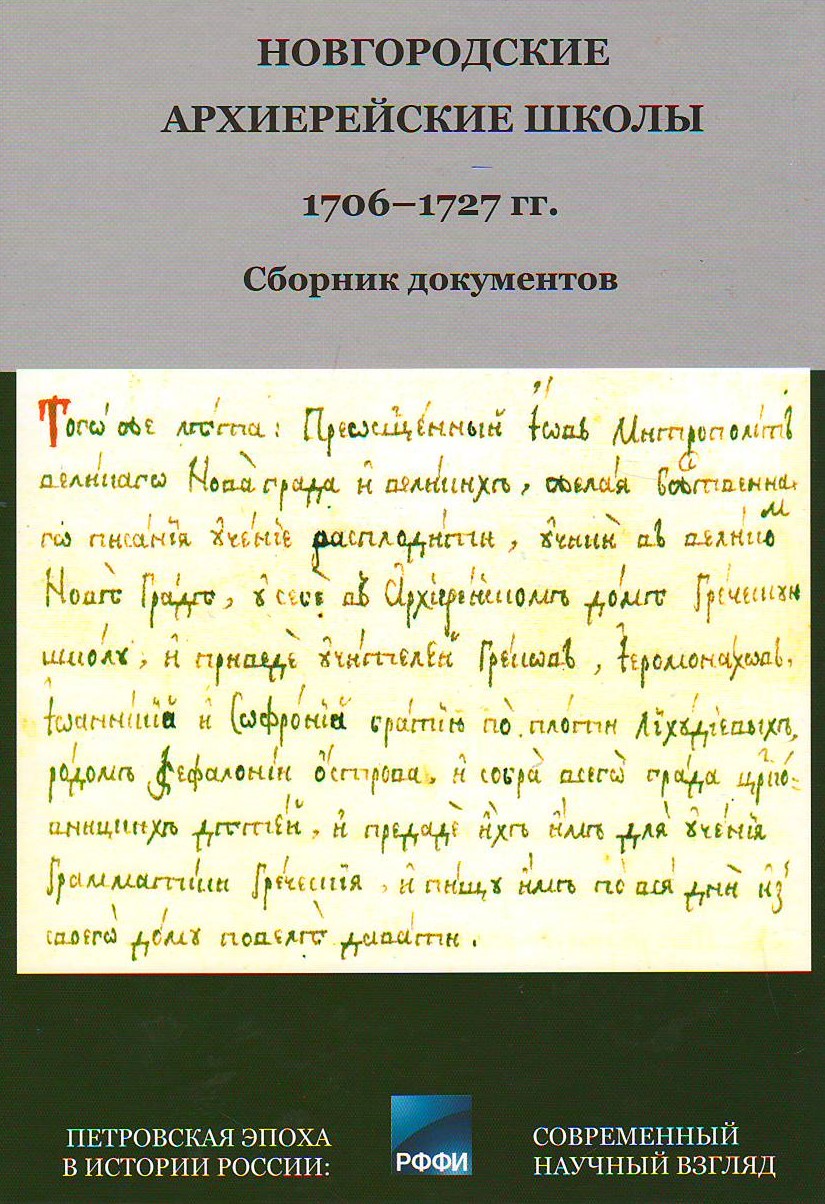 НОВГОРОДСКИЕ
АРХИЕРЕЙСКИЕ ШКОЛЫ
1706–1727 гг.
Сборник документов
Тогѡ́ же лѣ́та: Преѡсщ҃е́нный І҆́ѡвъ Митрополі́тъ
вели́кагѡ Нова̀ града и҆ вели́кихъ, жела́ѧ бж҃е́ственна-
гѡ писа́нїѧ ᲂу҆че́нїе распл̾оди́ти, ᲂу҆чинѝ въ вели́комъ
Но́вѣ Гра́дѣ, ᲂу҆ себѐ въ А҆рхїере́йскомъ до́мѣ Гре́ческую
шко́лу, и҆ приведѐ ᲂу҆чи́телей Гре́ковъ, І҆еромона́ховъ,
І҆ѡанни́кїа и҆ Сѡфро́нїа братїю по пло́ти Лїхꙋ́дїевыхъ,
ро́домъ Кефало́нїи ѻ҆́строва, и҆ собра̀ всегѡ̀ града цр҃ко́-
вническихъ дѣте́й, и҆ предадѐ и҆̀хъ и҆̀мъ для̀ ᲂу҆че́нїѧ
Грамма́тики Гре́ческїѧ, и҆ пи́щу и҆̀мъ по всѧ̑ дни̑ и҆з̾
своегѡ̀ до́му повелѣ̀ дава́ти.
ПЕТРОВСКАЯ ЭПОХА
В ИСТОРИИ РОССИИ:
РФФИ
СОВРЕМЕННЫЙ
НАУЧНЫЙ ВЗГЛЯД